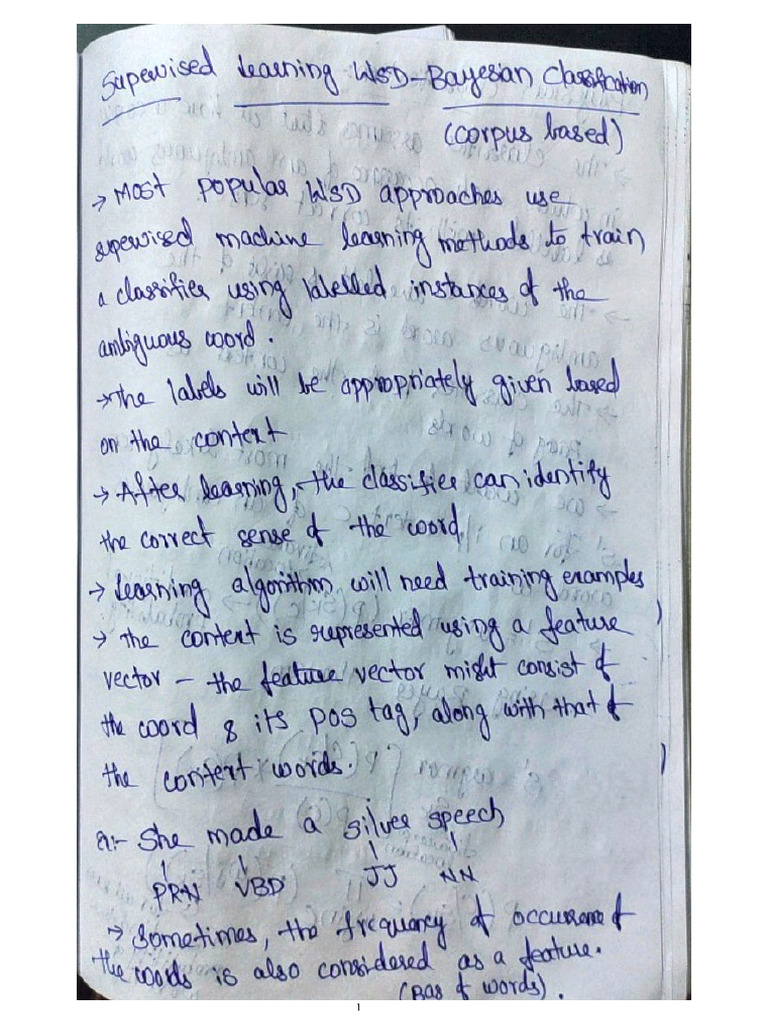 Supervised Learning WSD-Bayesian Classification
(corpus based)
→ Most popular WSD approaches use
supervised machine learning methods to train
a classifier using labelled instances of the
ambiguous word.
→ The labels will be appropriately given based
on the context
→ After learning, the classifier can identify
the correct sense of the word.
→ Learning algorithm will need training examples
→ The context is represented using a feature
vector – the feature vector might consist of
the word & its POS tag, along with that of
the context words.
She made a silver speech
PRN VBD JJ NN
→ Sometimes, the frequency of occurrence of
the words is also considered as a feature.
(Bag of words).
1